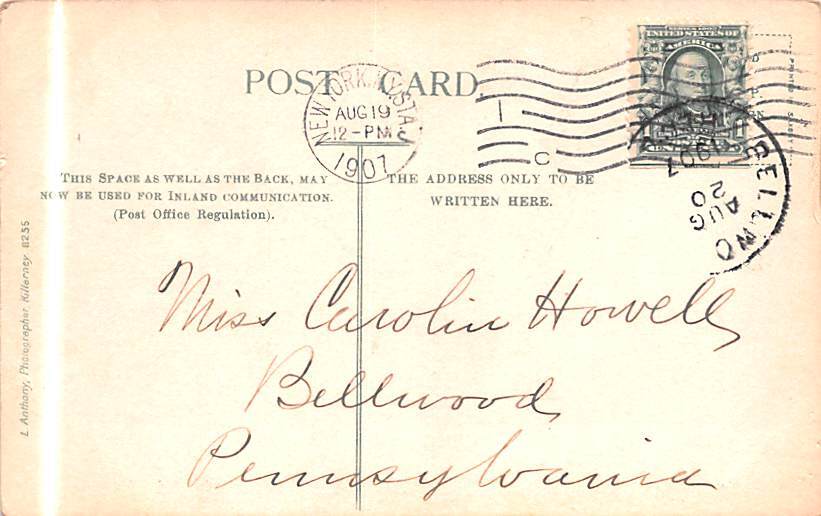 POST CARD.
NEW YORK, N.Y. STA.
AUG 19
12-PM
1907
C
UNITED STATES OF
AMERICA
BELLWO
AUG
20
1907
THIS SPACE AS WELL AS THE BACK, MAY
NOW BE USED FOR INLAND COMMUNICATION.
(Post Office Regulation).
THE ADDRESS ONLY TO BE
WRITTEN HERE.
Miss Carolin Howell,
Bellwood,
Pennsylvania
L Anthony, Photographer, Killarney 8255